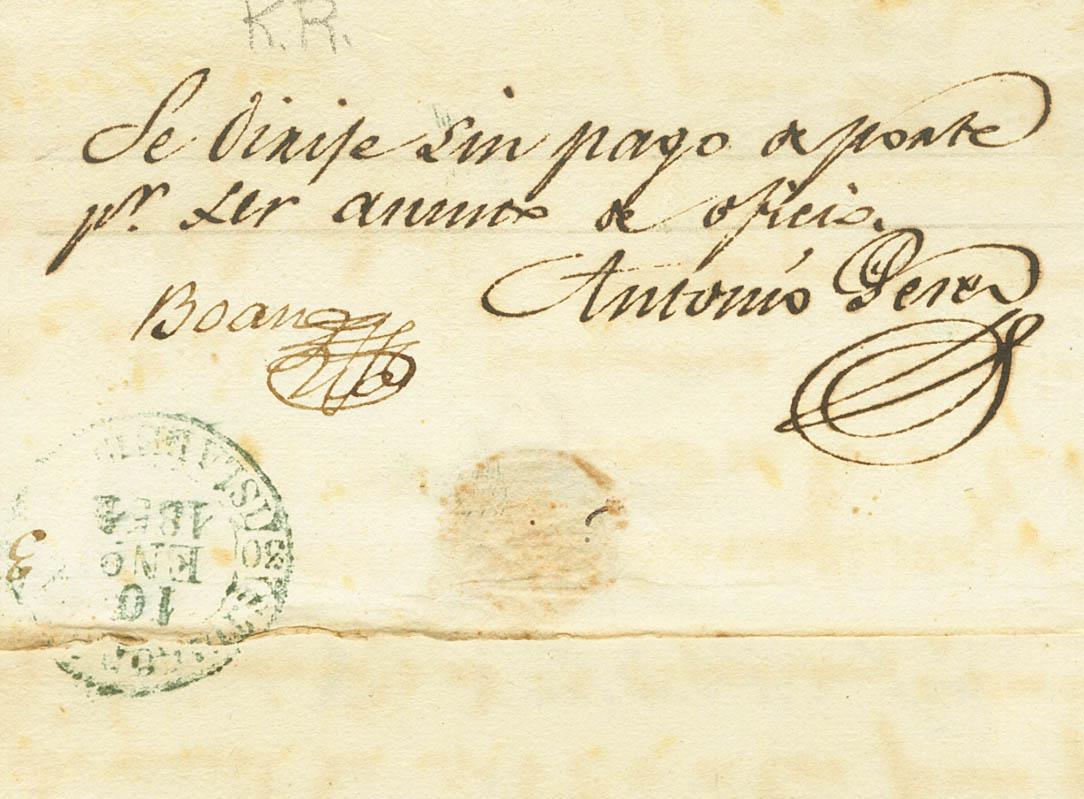 K.R.
Se dirije sin pago de porte
pr. ser asunto de oficio.
Antonio Perez
10
ENO
1854
3